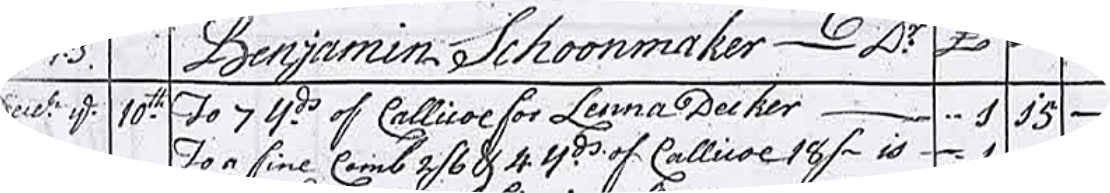 15. Benjamin Schoonmaker — Dr. £
10th To 7 Yds of Callicoe for Lenna Decker — .. 1 15 —
To a fine Comb 2/6 & 4 Yds of Callicoe 18/- is — 1